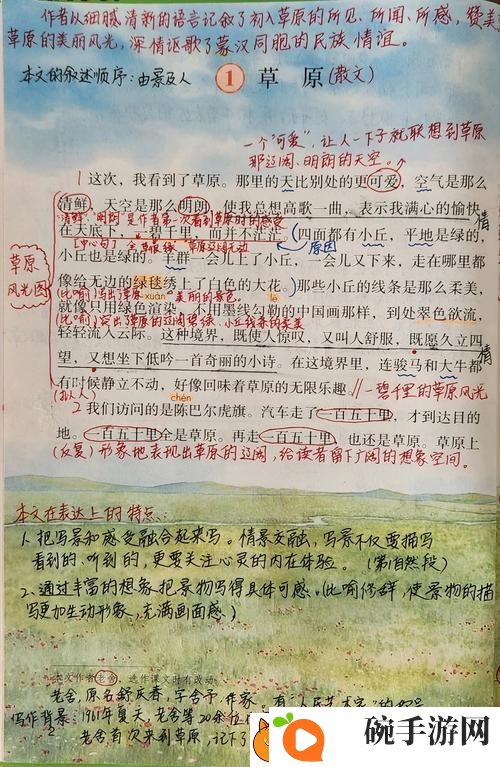 作者从细腻清新的语言记叙了初入草原的所见、所闻、所感，赞美
草原的美丽风光，深情讴歌了蒙汉同胞的民族情谊。
本文的叙述顺序：由景及人
1 草原(散文)
一个“可爱”，让人一下子就联想到草原
那辽阔、明朗的天空。
1 这次，我看到了草原。那里的天比别处的更可爱，空气是那么
清鲜，天空是那么明朗，使我总想高歌一曲，表示我满心的愉快
情
“清鲜”“明朗”是作者第一次看到草原时的感受
在天底下，一碧千里，而并不茫茫。(四面都有小丘，平地是绿的，
[中心句] 草原辽阔无边
原因
小丘也是绿的。羊群一会儿上了小丘，一会儿又下来，走在哪里都
草原
风光图
像给无边的绿毯绣上了白色的大花。)那些小丘的线条是那么柔美，
(比喻)写出了草原美丽的景色。
xuàn
lè
就像只用绿色渲染，不用墨线勾勒的中国画那样，到处翠色欲流，
(比喻)突出了草原的辽阔碧绿、小丘线条的柔美
轻轻流入云际。这种境界，既使人惊叹，又叫人舒服，既愿久立四
望，又想坐下低吟一首奇丽的小诗。在这境界里，连骏马和大牛都
情
有时候静立不动，好像回味着草原的无限乐趣。// 一碧千里的草原风光
(拟人)
chén
2 我们访问的是陈巴尔虎旗。汽车走了一百五十里，才到达目的
地。一百五十里全是草原。再走一百五十里，也还是草原。草原上
(反复)形象地表现出草原的辽阔，给读者留下广阔的想象空间。
本文在表达上的特点：
1.把写景和感受融合起来写。情景交融，写景不仅要描写
看到的、听到的，更要关注心灵的内在体验。(第1自然段)
2.通过丰富的想象把景物写得具体可感。(比喻修辞，使景物的描
写更加生动形象，充满画面感)
本文作者老舍，选作课文时有改动。
老舍，原名舒庆春，字舍予，作家，有“人民艺术家”的称号
写作背景：1961年夏天，老舍等20余位
老舍首次来到草原，记下了
2
碗手游网